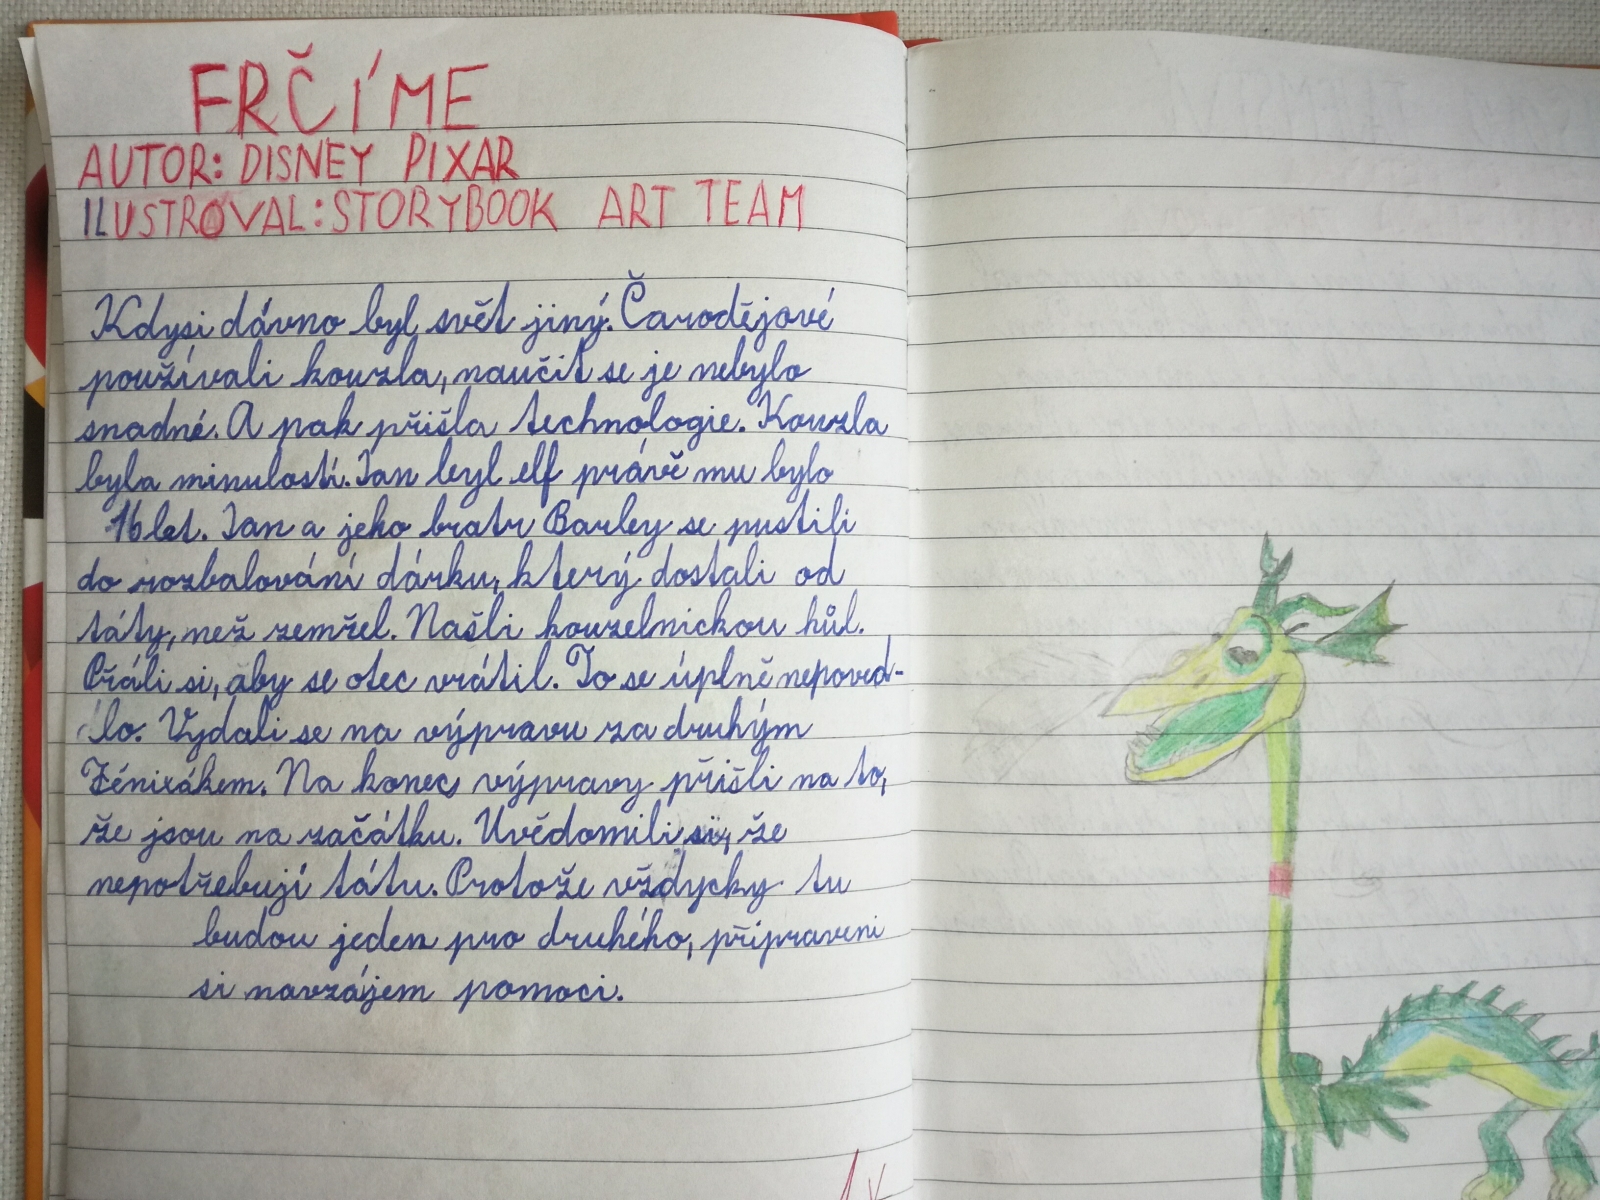 FRČÍME
AUTOR: DISNEY PIXAR
ILUSTROVAL: STORYBOOK ART TEAM
Kdysi dávno byl svět jiný. Čarodějové
používali kouzla, naučit se je nebylo
snadné. A pak přišla technologie. Kouzla
byla minulostí. Ian byl elf právě mu bylo
16 let. Ian a jeho bratr Barley se pustili
do rozbalování dárku, který dostali od
táty, než zemřel. Našli kouzelnickou hůl.
Přáli si, aby se otec vrátil. To se úplně nepoved-
lo. Vydali se na výpravu za druhým
Fénixákem. Na konec výpravy přišli na to,
že jsou na začátku. Uvědomili si, že
nepotřebují tátu. Protože vždycky tu
budou jeden pro druhého, připraveni
si navzájem pomoci.